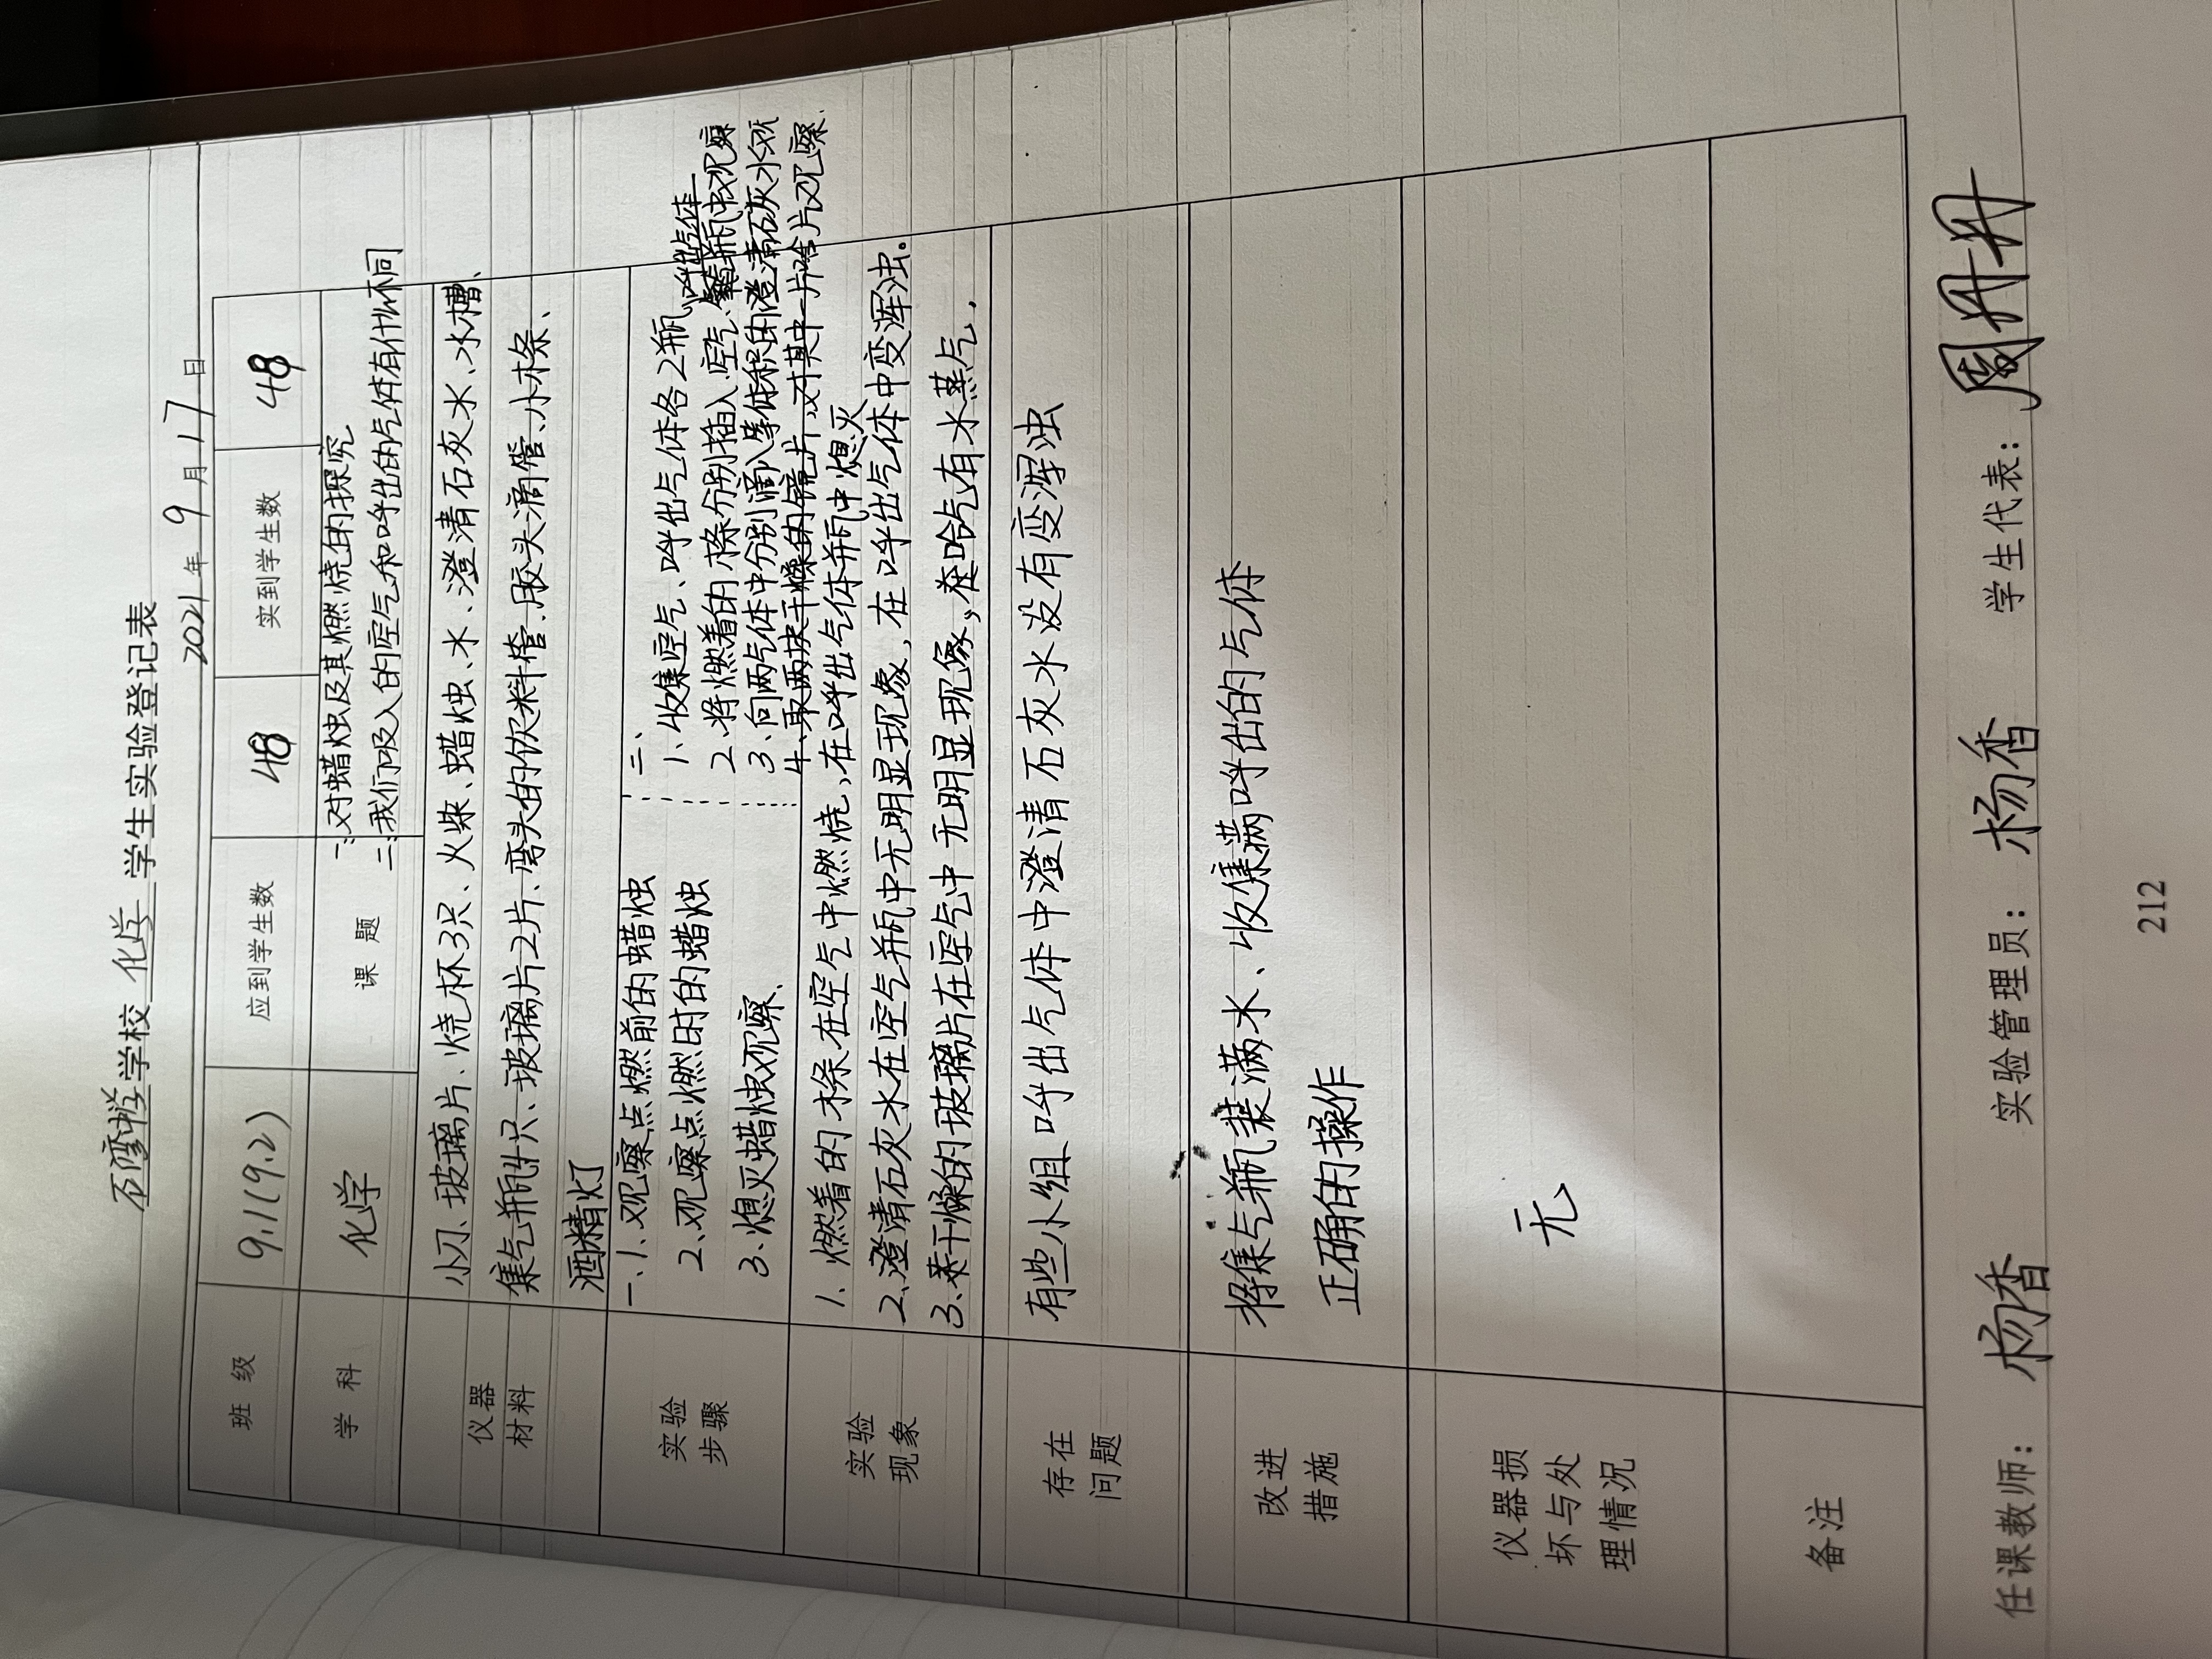 石湾中学学校 化学 学生实验登记表
2021年 9月 17日
班 级 9.1(9.2) 应到学生数 48 实到学生数 48
学 科 化学 课 题 一:对蜡烛及其燃烧的探究
二:我们吸入的空气和呼出的气体有什么不同
仪器
材料
小刀、玻璃片、烧杯3只、火柴、蜡烛、水、澄清石灰水、水槽、
集气瓶4只、玻璃片2片、弯头的饮料管、胶头滴管、小木条、
酒精灯
实验
步骤
一、1、观察点燃前的蜡烛
2、观察点燃时的蜡烛
3、熄灭蜡烛观察、
二、
1、收集空气、呼出气体各2瓶
2、将燃着的木条分别插入空气、呼出气体瓶中观察
3、向两气体中分别滴入等体积的澄清石灰水观
4、取两块干燥的镜片,对其中一片哈片观察.
实验
现象
1、燃着的木条在空气中燃烧,在呼出气体瓶中熄灭
2、澄清石灰水在空气瓶中无明显现象,在呼出气体中变浑浊.
3、干燥的玻璃片在空气中无明显现象,在哈气有水蒸气.
存在
问题
有些小组呼出气体中澄清石灰水没有变浑浊
改进
措施
将集气瓶装满水、收集满呼出的气体
正确的操作
仪器损
坏与处
理情况
无
备注
任课教师: 杨香 实验管理员: 杨香 学生代表: 周丹丹
212